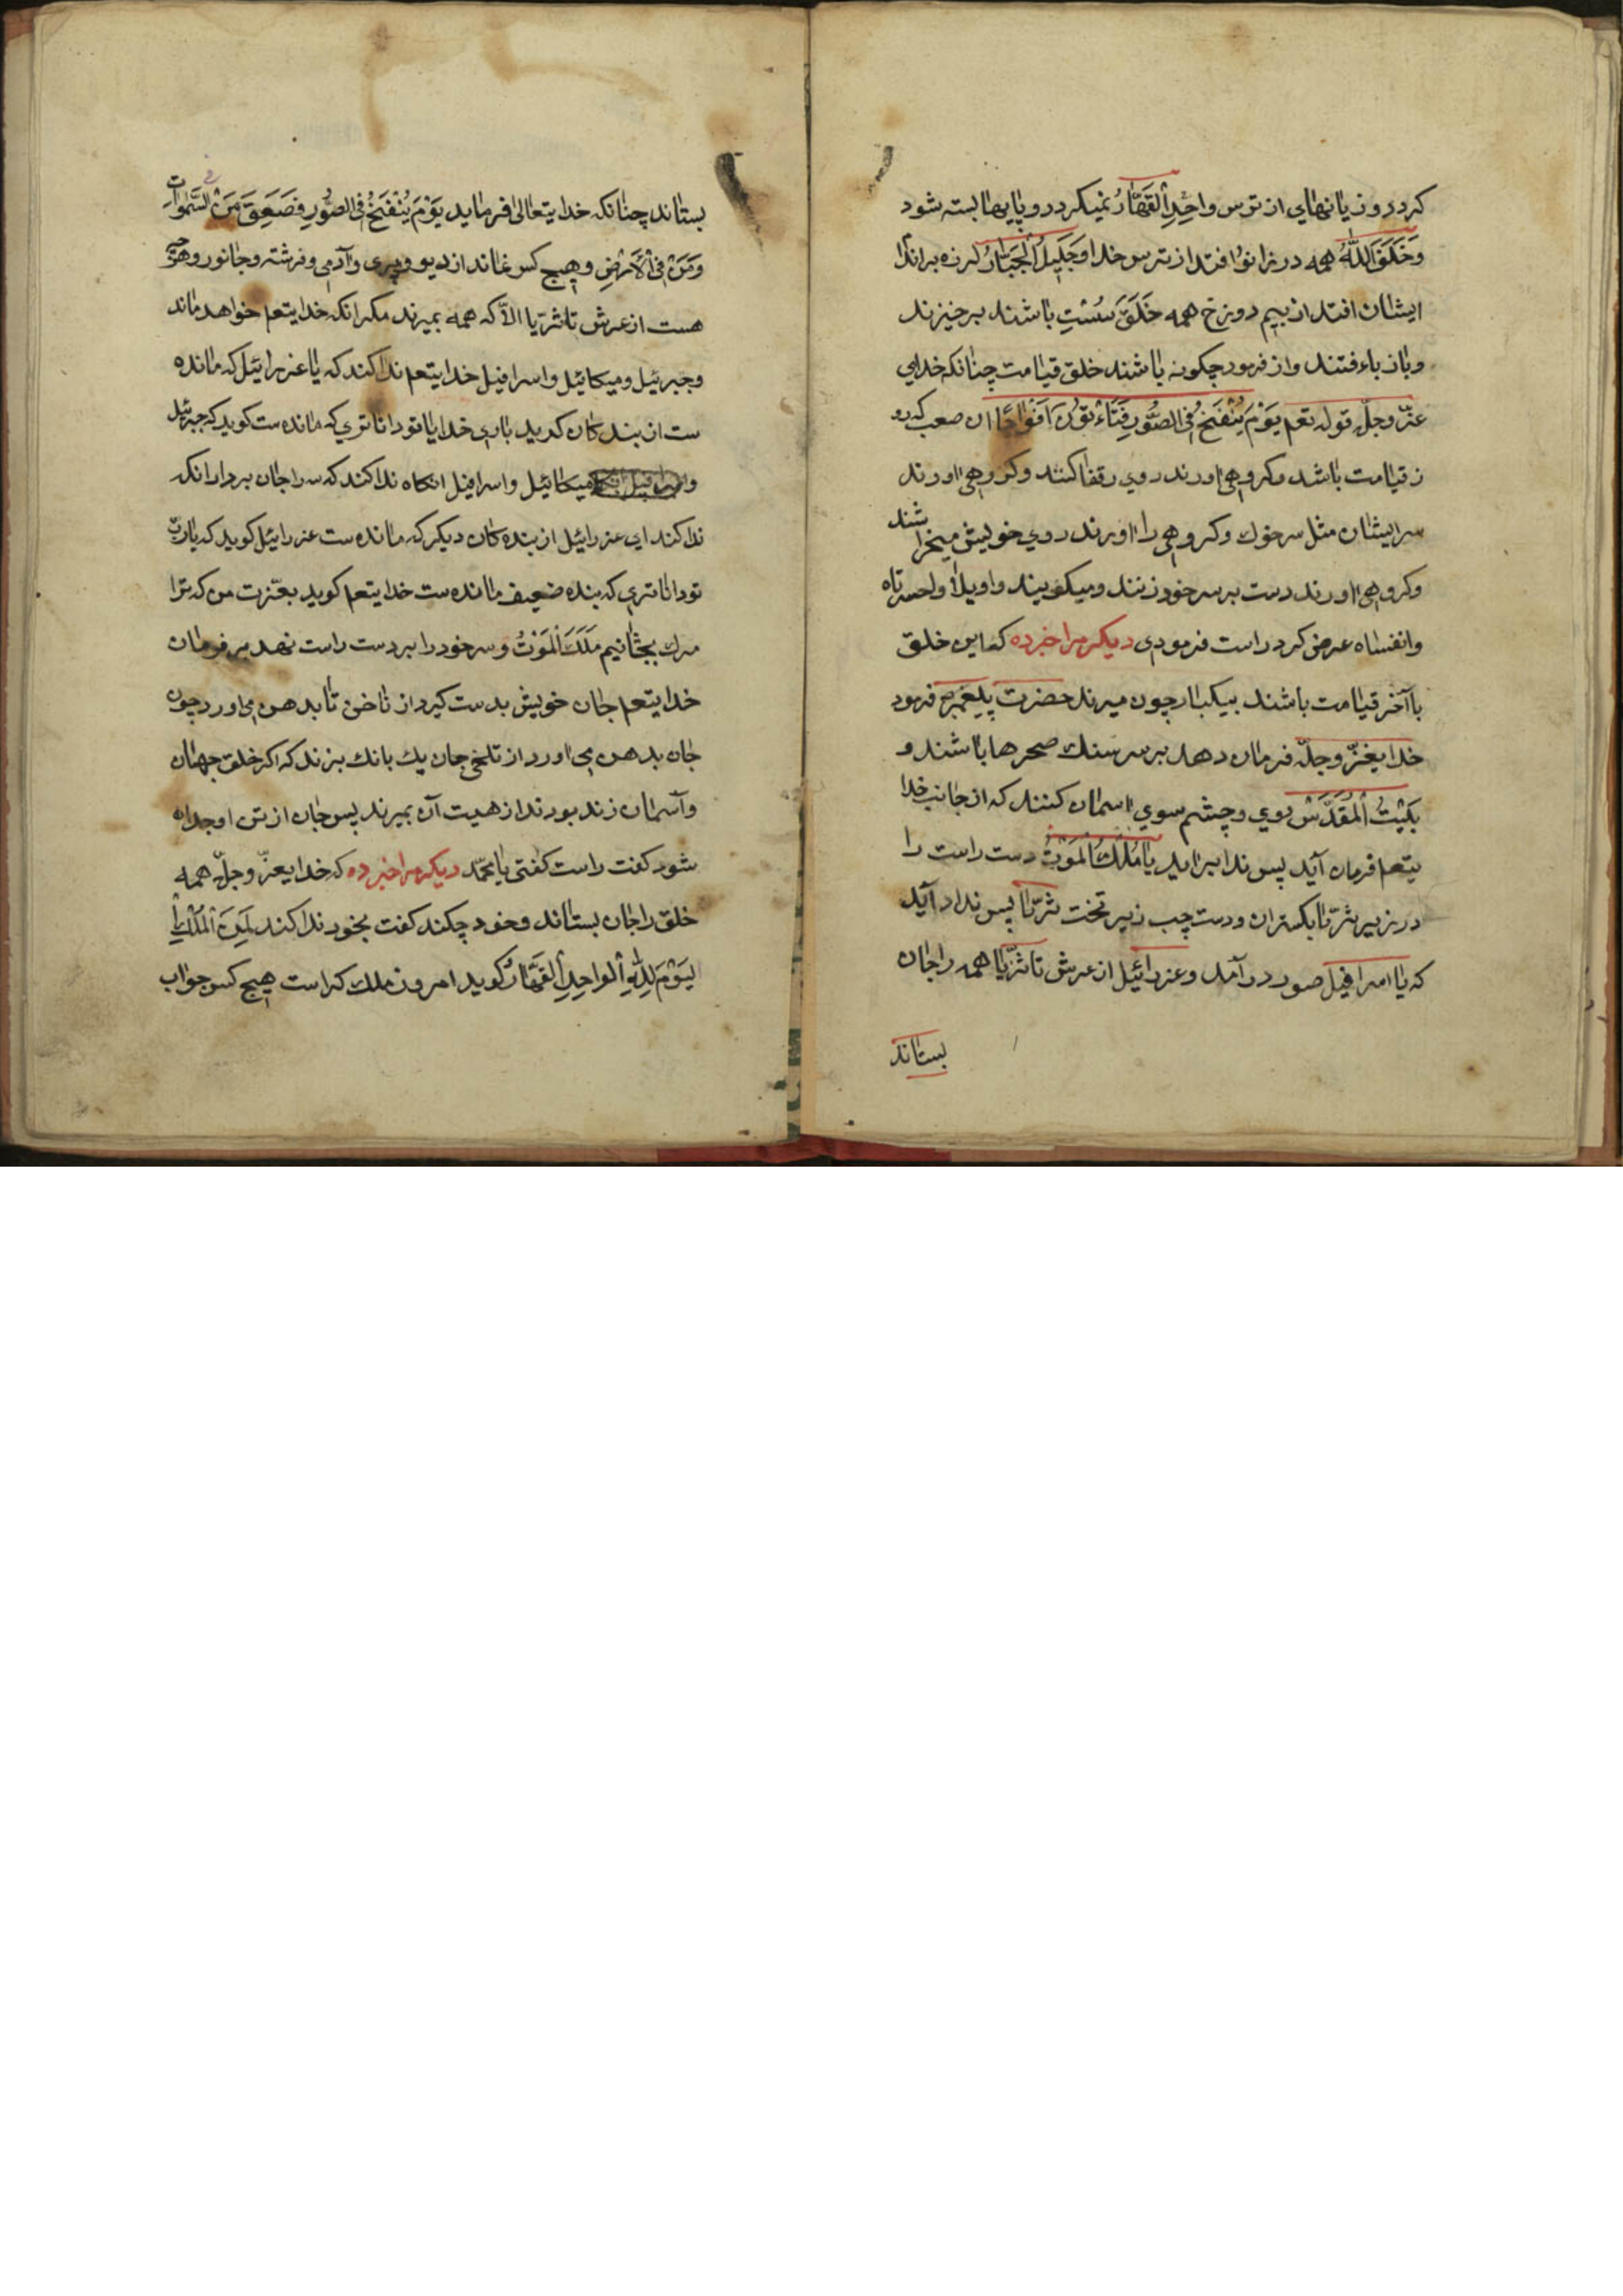 کردد روز یانهای از ترس واحِدِ اَلقَهّارُ نمیکردد و پایها بسته شود
وَخَلَقَ اللّٰهُ همه در زانوا فتد از ترس خدا وجَلَیلُ الجَبّارُ لرزه براندا
ایشان افتد از بیم دوزخ همه خَلَقَ سُسْتِ باشند برخیزند
و باز باء فتند و از فرمود چکونه باشند خلق قیامت چنانکه خدای
عزّ وجلّ قوله تعم یَوْمَ یُنْفَخُ فی الصُّورِ فَتَاءْتوُنَ اَفْوٰاجًا ان صعب که رو
ز قیامت باشد وکروهی اورند روی رقفا کنند وکروهی اورند
سر ایشان مثل سر خوك وکروهی را اورند روی خویش میخرا شند
وکروهی اورند دست بر سر خود زنند ومیکویند واویلا واحسرتاه
وانفساه عرض کرد راست فرمودی دیکر مرا خبر ده که این خلق
با آخر قیامت باشند بیکبار چون میرند حضرت پیغمبر فرمود
خدایعزّ وجلّ فرمان دهد بر سر سنك صحرها باشند و
بَیْتُ اَلْمُقَدَّسْ روی وچشم سوی اسمان کنند که از جانب خدا
یتعم فرمان آید پس ندا براید یا مَلَكُ المَوْتُ دست راست را
در زیر ثرّیا بکستران ودست چپ زیر تخت ثرّیا پس ندا در آید
که یا اسرافیل صور در آمد وعزرائیل از عرش تا ثرّیا همه را جان
بستاند
بستاند چنانکه خدایتعالی فرماید یَوْمَ یُنْفَخُ فی الصُّورِ فَصَعِقَ مَنْ فی السَّمٰواتِ
وَمَنْ فی اْلاَرْضِ وهیچ کس نماند از دیو وپری وآدمی وفرشته وجانور وهر چه
هست از عرش تا ثرّیا الاّ که همه بمیرند مکر انکه خدایتعم خواهد ماند
وجبرئیل ومیکائیل واسرافیل خدایتعم ندا کند که یا عزرائیل که مانده
ست از بندکان کوید باری خدایا تو داناتری که مانده ست کوید که جبرئیل
و میکائیل واسرافیل انکاه ندا کند که سه را جان بردار انکه
ندا کند ای عزرائیل از بنده کان دیکر که مانده ست عزرائیل کوید که یارب
تو داناتری که بنده ضعیف مانده ست خدایتعم کوید بعّزت من که ترا
مرك بچشانیم مَلَكَ اْلمَوْتُ وسر خود را بر دست راست نهد بر فرمان
خدایتعم جان خویش بدست کیرد از ناخن تا بدهن می اورد چون
جان بدهن می اورد از تلخی جان یك بانك بزند که اکر خلق جهان
وآسمان زنده بودند از هیبت آن بمیرند پس جان از تن او جداه
شود کفت راست کفتی یا محمّد دیکر مرا خبر ده که خدایعزّ وجلّ همه
خلق را جان بستاند وخود چکند کفت بخود ندا کند لِمَنِ اْلمُلْكُ
الیَوْمَ لِلّٰهِ اْلواحِدِ اْلقَهَّارُ کوید امروز ملك کراست هیچ کس جواب